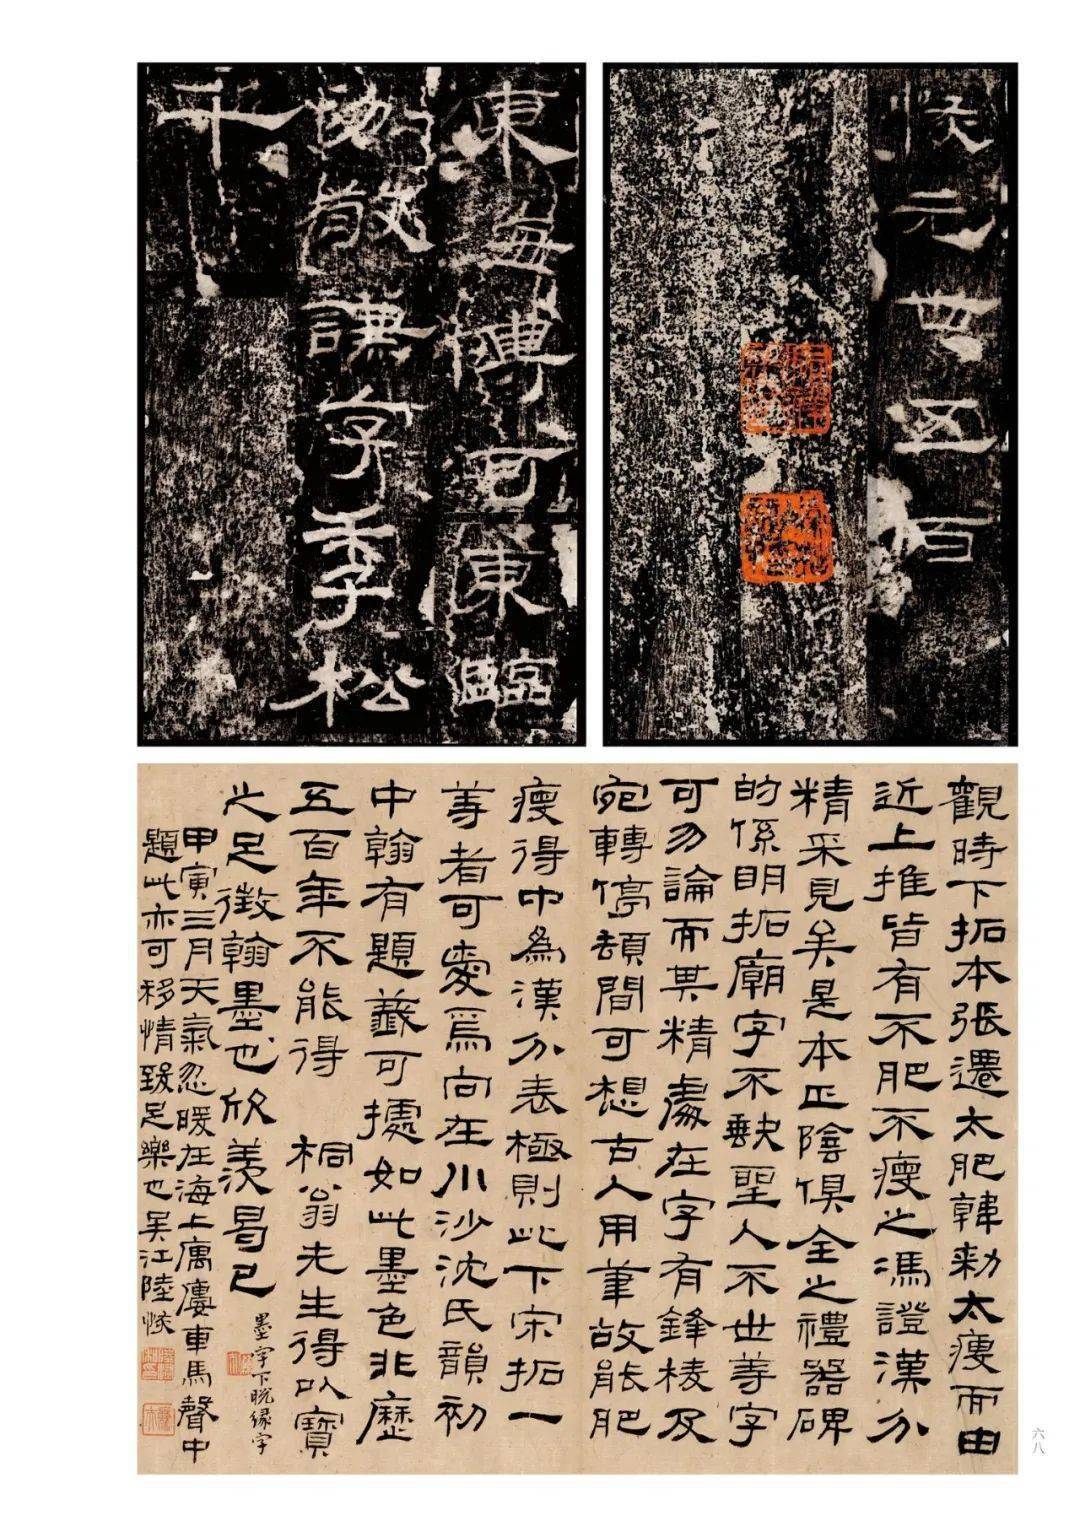 東海傅河東臨
敬謙字季松
千
侯元世五百
觀時下拓本張遷太肥韓勑太瘦而由
近上推皆有不肥不瘦之馮證漢分
精采見矣是本正陰俱全之禮器碑
的係明拓廟字不缺聖人不世等字
可勿論而其精處在字有鋒棱及
宛轉停頓間可想古人用筆故能肥
瘦得中為漢分表極則此下宋拓一
等者可愛焉向在川沙沈氏韻初
中翰有題籤可據如此墨色非歷
五百年不能得 桐翁先生得以寶
之足徵翰墨也欣羨曷已
墨字下脫緣字
甲寅三月天氣忽暖在海上廡廔車馬聲中
題此亦可移情致足樂也吳江陸恢
六八